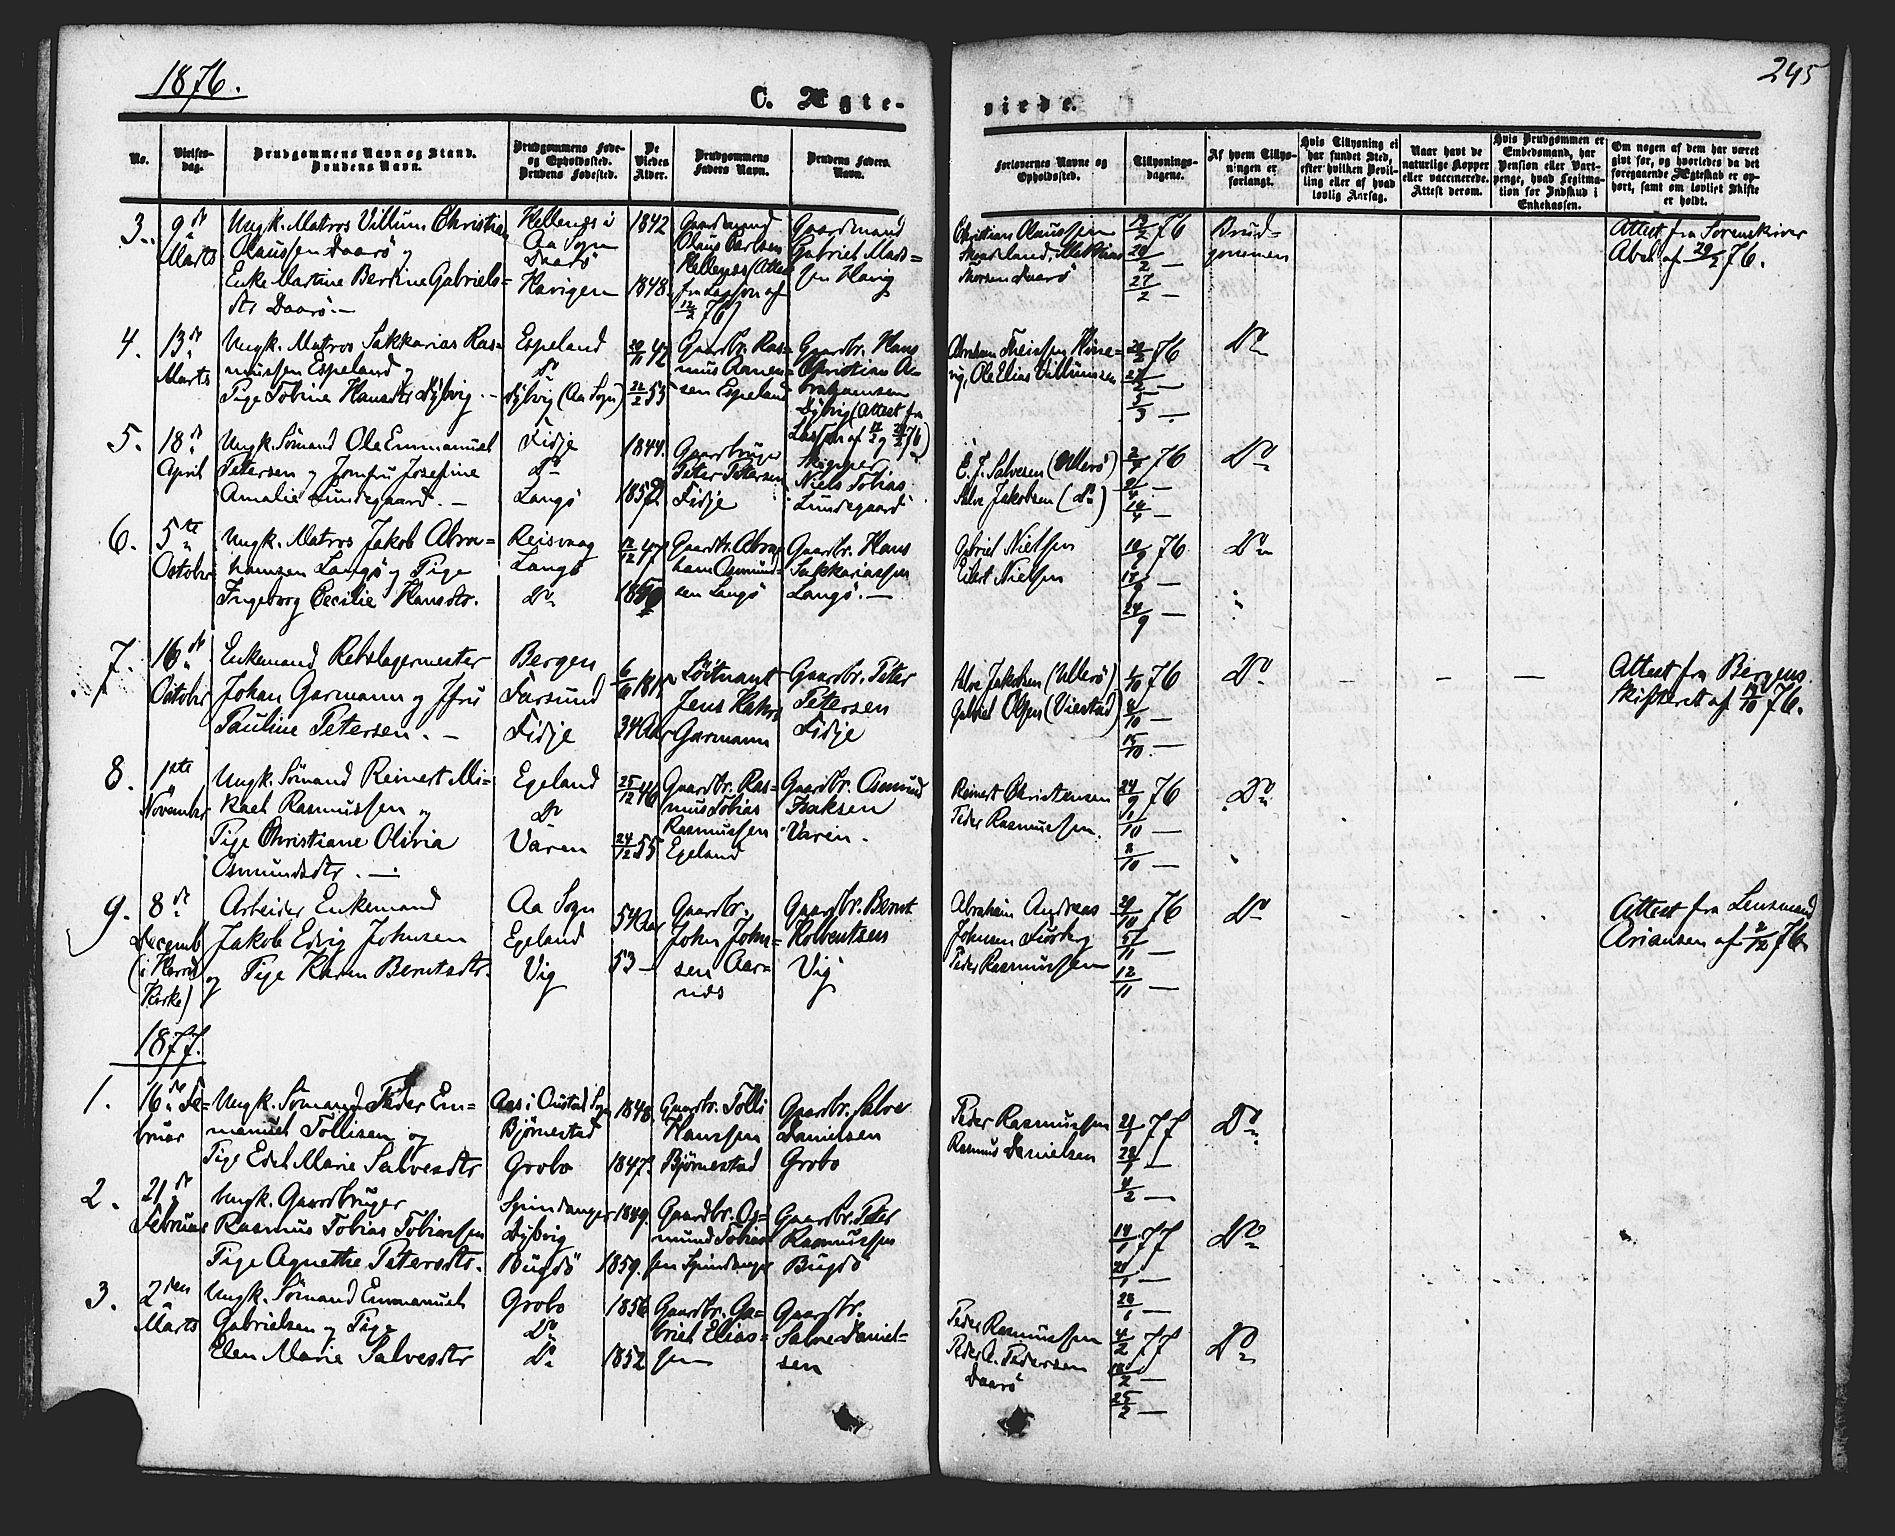 1876.
C. Ægte-
viede.
245
No.
Vielses-
dag.
Brudgommens Navn og Stand.
Brudens Navn.
Brudgommens Føde-
og Opholdssted.
Brudens Fødested.
De
Viedes
Alder.
Brudgommens
Faders Navn.
Brudens Faders
Navn.
Forlovernes Navne og
Opholdssted.
Tillysnings-
dagene.
Af hvem Tillys-
ningen er
forlangt.
Hvis Tillysning ei
har fundet Sted,
efter hvilken Bevil-
ling eller af hvad
lovlig Aarsag.
Naar havt de
naturlige Kopper
eller vaccinerede.
Attest derom.
Hvis Brudgommen er
Embedsmand, har
Pension eller Vart-
penge, hvad Legitima-
tion for Indskud i
Enkekassen.
Om nogen af dem har været
gift før, og hvorledes da det
foregaaende Ægteskab er op-
hørt, samt om lovligt Skifte
er holdt.
3.
9de
Marts
Ungk. Matros Villum Christian
Olaussen Daarö og
Enke Martine Bertine Gabriels-
dtr Daarö.—
Hellenes i
Aa Sogn
Daarö
Havigen
1842
1848.
Gaardmand
Olaus Carlsen
Hellenes (Attest
fra Lassen af
12/2 76)
Gaardmand
Gabriel Mads-
sen Havig
Christian Olaussen
Skeidsland, Mathias
Thorsen Daarö
76
20/2 —
27/2 —
Brud-
gommen
Attest fra Sorenskriver
Abel af 29/2 76.
4.
13de
Marts
Ungk. Matros Sakkarias Ras-
mussen Espeland og
Pige Tobine Hansdtr Dÿbvig. —
Espeland
Do
Dÿbvig (Aa Sogn)
20/11 42
22/2 55
Gaardbr. Ras-
mus Aanen-
sen Espeland
Gaardbr. Hans
Christian A-
brahamsen
Dÿbvig (Attest fra
Lassen af 76)
Abraham Theissen
Ole Elias Villumsen
20/2 76
27/2 —
5/3 —
Do
5.
18de
April
Ungk. Sömand Ole Emmanuel
Petersen og Jomfru Josefine
Amalie Lundegaard. —
Fidje
Do
Langö
1844.
1852
Gaardbruger
Peter Petersen
Fidje
Skipper
Niels Tobias
Lundegaard
E. F. Salvesen (Ullerö)
Salve Jakobsen (do)
2/4 76
9/4 —
16/4 —
Do
6.
5te
October
Ungk. Matros Jakob Abra-
hamsen Langö og Pige
Ingeborg Cecilie Hansdtr.
Reisvaag
Langö
Do
12/12 47
1850
Gaardbr. Abra-
ham Osmund-
sen Langö
Gaardbr. Hans
Sakkariassen
Langö. —
Gabriel Nielsen
Eilert Nielsen
10/9 76
17/9 —
24/9 —
Do
7.
16de
October
Enkemand Rebslagermester
Johan Garmann og Jfru
Pauline Petersen. —
Bergen
Farsund
Fidje
34 Aar
Löitnant
Jens
Garmann
Gaardbr. Peter
Petersen
Fidje
Salve Jakobsen (Ullerö)
Gabriel Olsen (Viestad)
1/10 76
8/10 —
15/10 —
Do
Attest fra Bergens
Skifteret af 76.
8.
1ste
November
Ungk. Sömand Reinert Mi-
kael Rasmussen og
Pige Christiane Olivia
Osmundsdtr. —
Egeland
Do
Varen
25/12 46
24/12 55
Gaardbr. Ras-
mus Tobias
Rasmussen
Egeland
Gaardbr. Osmund
Isaksen
Varen.
Reinert Christensen
Peder Rasmussen.
24/9 76
1/10 —
8/10 —
Do
9.
8de
Decemb
(i Herred
Kirke)
Arbeider Enkemand
Jakob Edvig Johnsen
og Pige Karen Berntsdtr.
Aa Sogn
Egeland
Vig
54 Aar
53 —
Gaardbr.
John John-
sen Aar-
nes
Gaardbr. Bernt
Rolventsen
Vig
Abraham Andreas
Johnsen
Peder Rasmussen
29/10 76
5/11 —
12/11 —
Do
Attest fra Lensmand
Ariansen af 2/12 76.
1877.
1.
16de Fe-
bruar
Ungk. Sömand Peder Em-
manuel Tollisen og
Pige Edel Marie Salvesdtr
Aas i Oustad Sogn
Björnestad
Grobo
1848.
1847.
Gaardbr. Tolli
Hanssen
Björnestad
Gaardbr. Salve
Danielsen
Grobo
Peder Rasmussen
Rasmus Danielsen
21/1 77
28/1 —
4/2 —
Do
2.
21de
Februar
Ungk. Gaardbruger
Rasmus Tobias Tobiassen
Pige Agnethe Petersdtr.
Spindanger
Dÿbvig
Bugdö
1849.
1859.
Gaardbr. Os-
mund Tobias-
sen Spindanger
Gaardbr. Peter
Rasmussen
Bugdö
14/1 77
21/1 —
28/1 —
Do
3.
2den
Marts
Ungk. Sömand Emmanuel
Gabrielsen og Pige
Elen Marie Salvesdtr
Grobo
Do
Do
1856
1852
Gaardbr. Ga-
briel Elias-
sen
Gaardbr.
Salve Daniel-
sen
Peder Rasmussen
Peder A. Pedersen
Daarö
4/2 77
18/2 —
25/2 —
Do